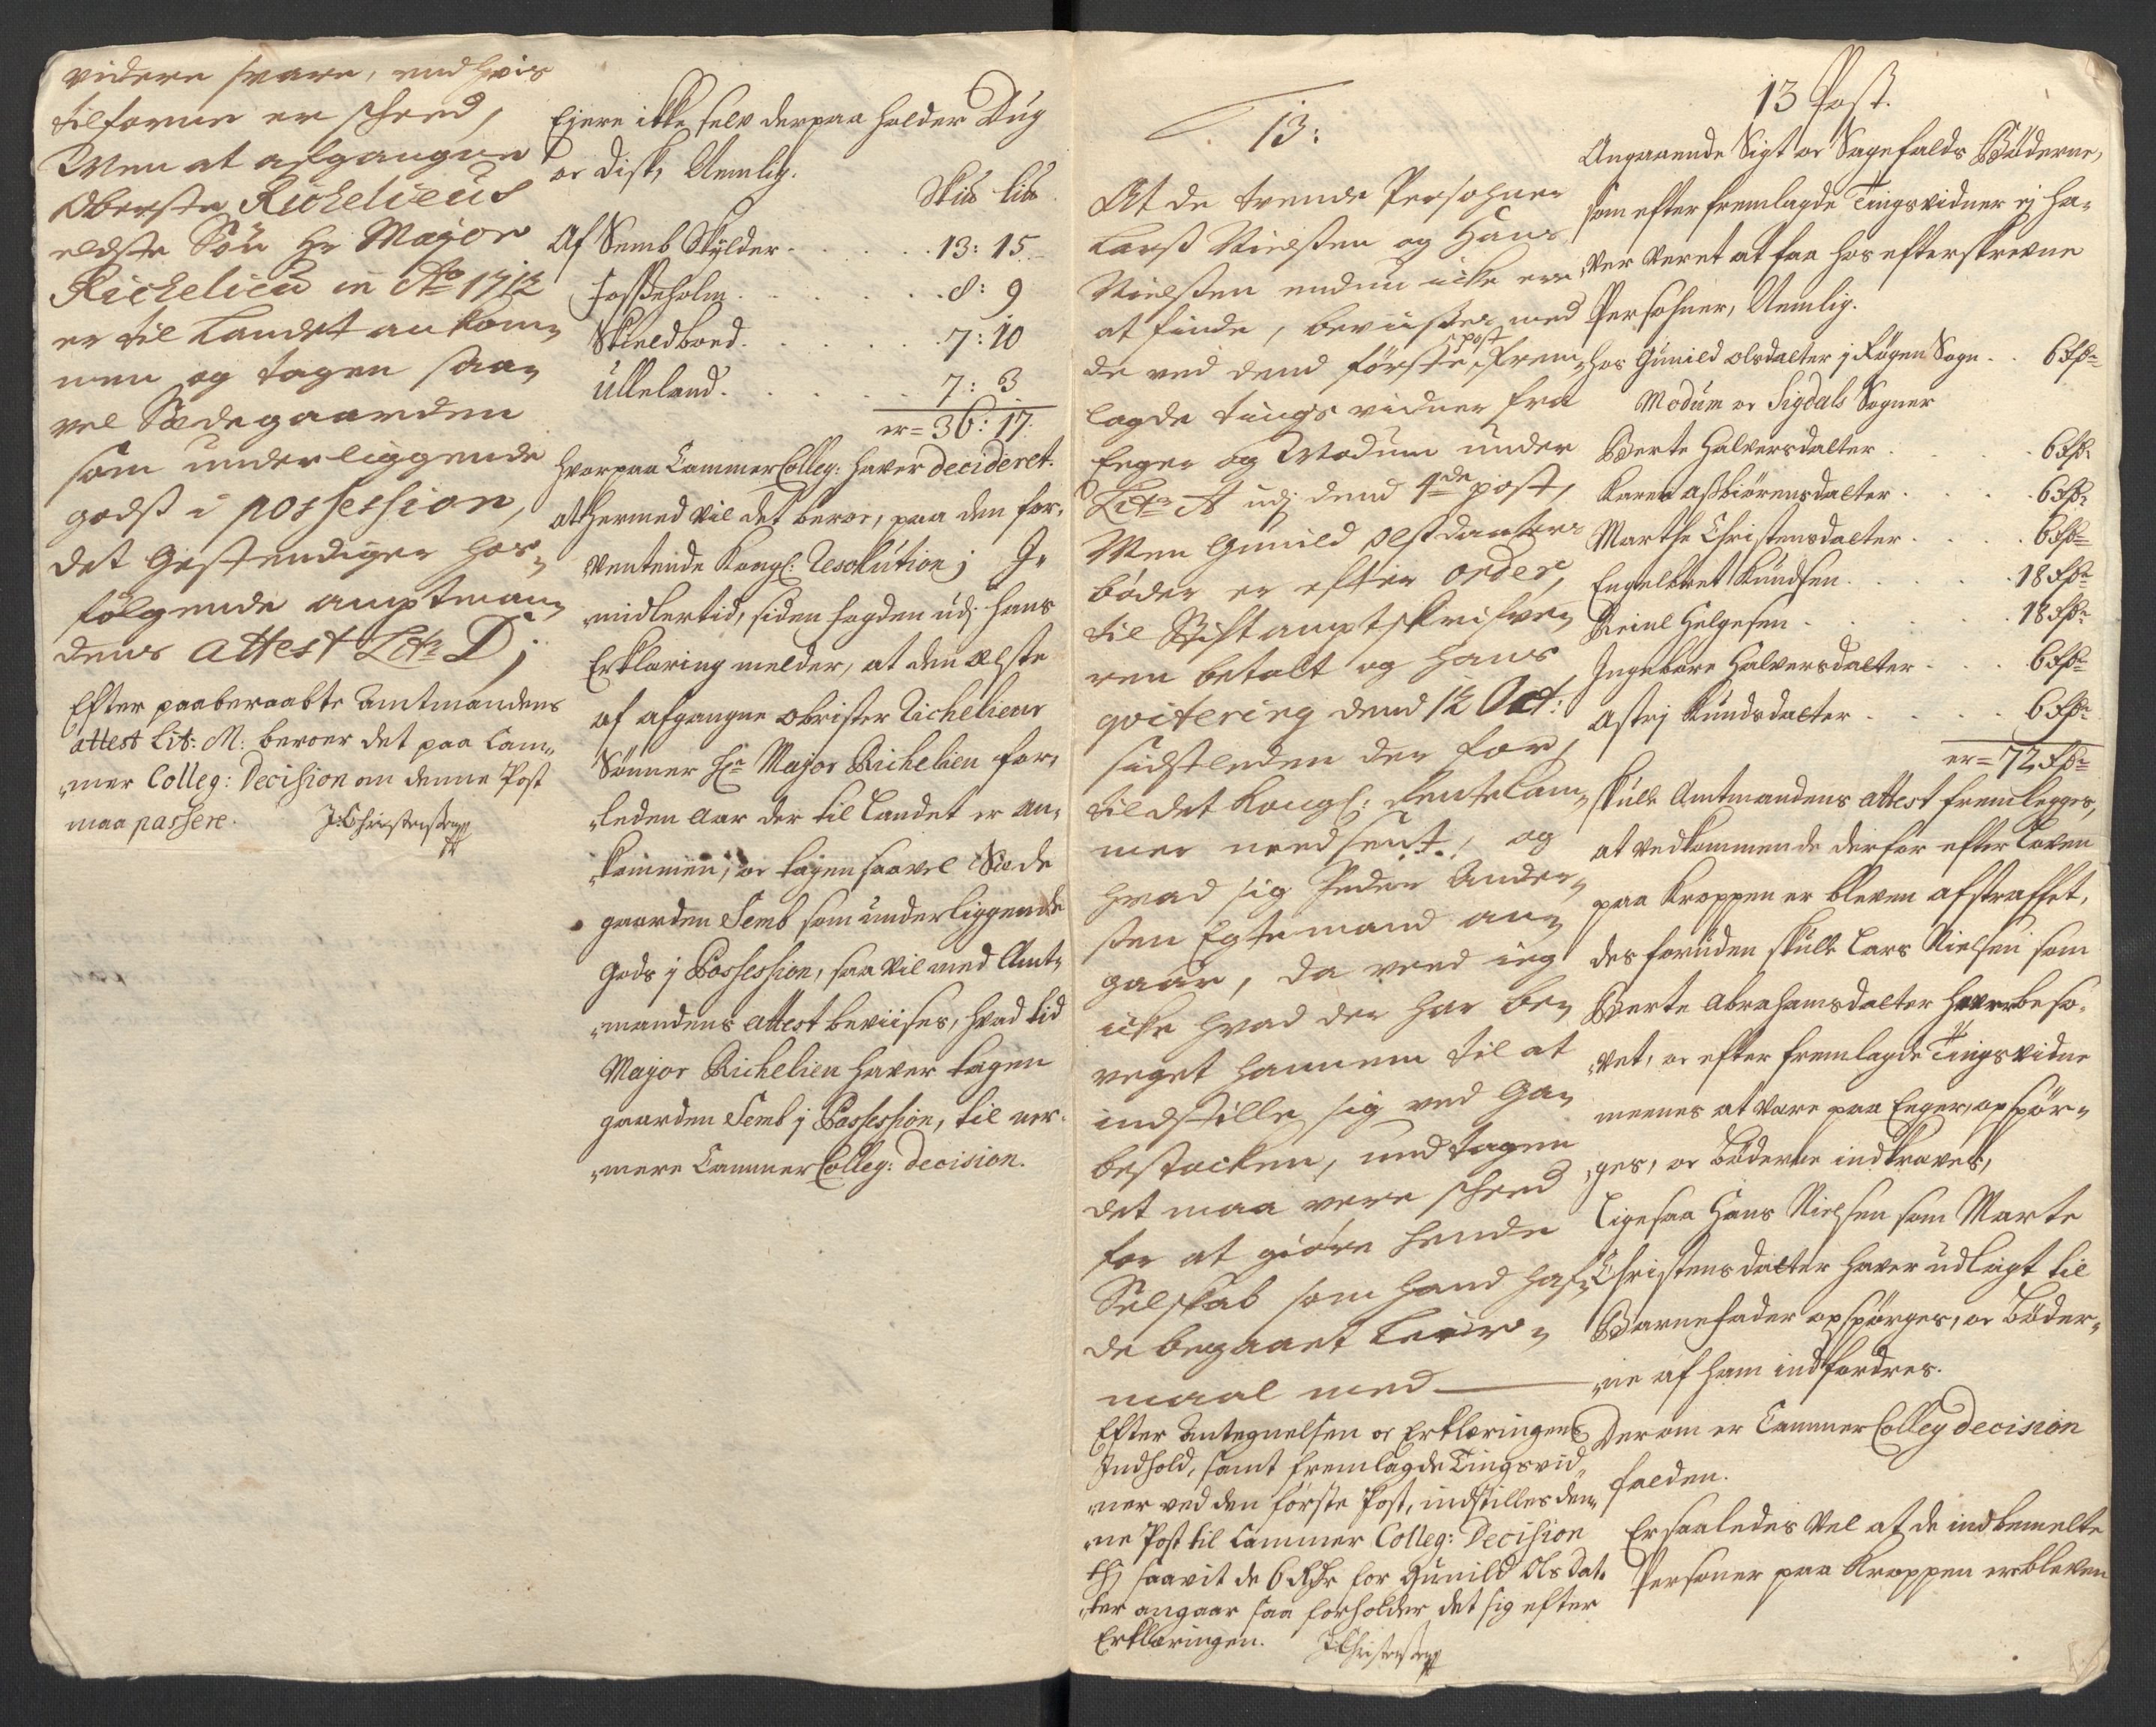 videre svare, end hvis
tilforne er skeed,
Men at afgangne
Oberste Richelieus
eldste Sön Hr Major
Richelieu in Ao 1712
er til Landet ankom¬
men og tagen saa¬
vel Sædegaarden
som underliggende
godtz i possession,
det Gestendiger hos¬
fölgende amptman¬
dens attest Litr D;
Efter paaberaabte Amtmandens
attest Lit: M: beroer det paa Cam¬
mer Colleg: Decision om denne Post
maa passere.
Ejere ikke selv derpaa holder Dug
oc Disk, Nemlig.
Skib Lib
Af Semb Skylder . . . 13: 15
Fosseholm . . . 8: 9
Skieldbred . . . 7: 10
Ulleland . . . 7: 3
er = 36: 17
hvorpaa Cammer Colleg: haver decideret.
at hermed vil det beroe, paa den for¬
ventende Kongl: Resolution; I¬
midlertid, siden fogden udj hans
Erklæring melder, at den Elste
af afgangne Obrister Richelieus
Sönner Hr Major Richelieu for¬
leden Aar der til Landet er an¬
kommen, oc tagen saavel Sæde
gaarden Semb som underliggende
Gods j Possession, saa vil med Amt¬
mandens attest beviises, hvad tid
Major Richelieu haver tagen
gaarden Semb j Possession, til ner¬
mere Cammer Colleg: decision.
13:
At de tvende Persohner
Larss Nielssen og Hans
Nielssen endnu icke ere
at finde, beviisses med
de ved dend förste post frem¬
lagde tings vidner fra
Eger og Modum under
Litr A udj dend 4de post,
Men Gunild Olssdaaters
böder er efter order,
til Stiftamptskrifve¬
ren betalt og hans
qvitering dend 12 Oct:
sidstleden der for,
til det Kongl: Rentekam¬
mer needsent, og
hvad sig Peder Ander¬
ssen Egtemand an¬
gaar, da veed ieg
icke hvad der har be¬
veget hannem til at
indstille sig ved Ga¬
bestocken, undtagen
det maa vere skeed
for at giöre hende
Selskab som hand haf¬
de begaaet Leier¬
maal med
Efter Antegnelsen oc Erklæringens
Indhold, samt fremlagde Tingsvid¬
ner ved den förste Post, indstilles den¬
ne Post til Cammer Colleg: Decision
Thj saavit de 6 Rdr for Gunild Ols dat¬
ter angaar saa forholder det sig efter
Erklæringen.
13 Post.
Angaaende Sigt oc Sagefalds Böderne,
som efter fremlagde Tingsvidner ej ha¬
ver veret at faa hos efterskrevne
Persohner, Nemlig.
hos Gunild Olsdatter j Rögen Sogn . . 6 Rdr
Modum oc Sigdals Sogner
Berte Halversdatter . . . 6 Rdr
Karen Assbiörensdatter . . . 6 Rdr
Marthe Christensdatter . . . 6 Rdr
Engelbret Knudsen . . . 18 Rdr
Reinl Helgesen . . . 18 Rdr
Ingebore Halversdatter . . . 6 Rdr
Astrj Knudsdatter . . . 6 Rdr
er = 72 Rdr
skulle Amtmandens attest fremlegges,
at vedkommende derfor efter Loven
paa Kroppen er bleven afstraffet,
desforuden skulle Lars Nielsen som
Berte Abrahamsdatter haver beso¬
vet, oc efter fremlagde Tingsvidne
meenes at være paa Eger, opspör¬
ges, oc Böderne indkræves,
Ligesaa Hans Nielsen som Marte
Christensdatter haver udlagt til
Barnefader opspörges, oc Böder¬
ne af ham indfordres.
Derom er Cammer Colleg decision
falden.
Er saaledes vel at de indbemelte
Personer paa Kroppen er bleven